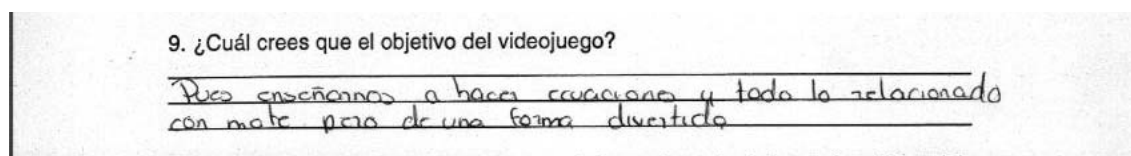 9. ¿Cuál crees que el objetivo del videojuego?
Pues enseñarnos a hacer ecuaciones y todo lo relacionado
con mate pero de una forma divertida